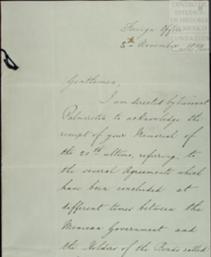 Foreign Office
5th November 18
Gentlemen,
I am directed by Viscount
Palmerston to acknowledge the
receipt of your Memorial of
the 20th ultimo, referring to
the several Agreements which
have been concluded at
different times between the
Mexican Government and
the Holders of the Bonds called